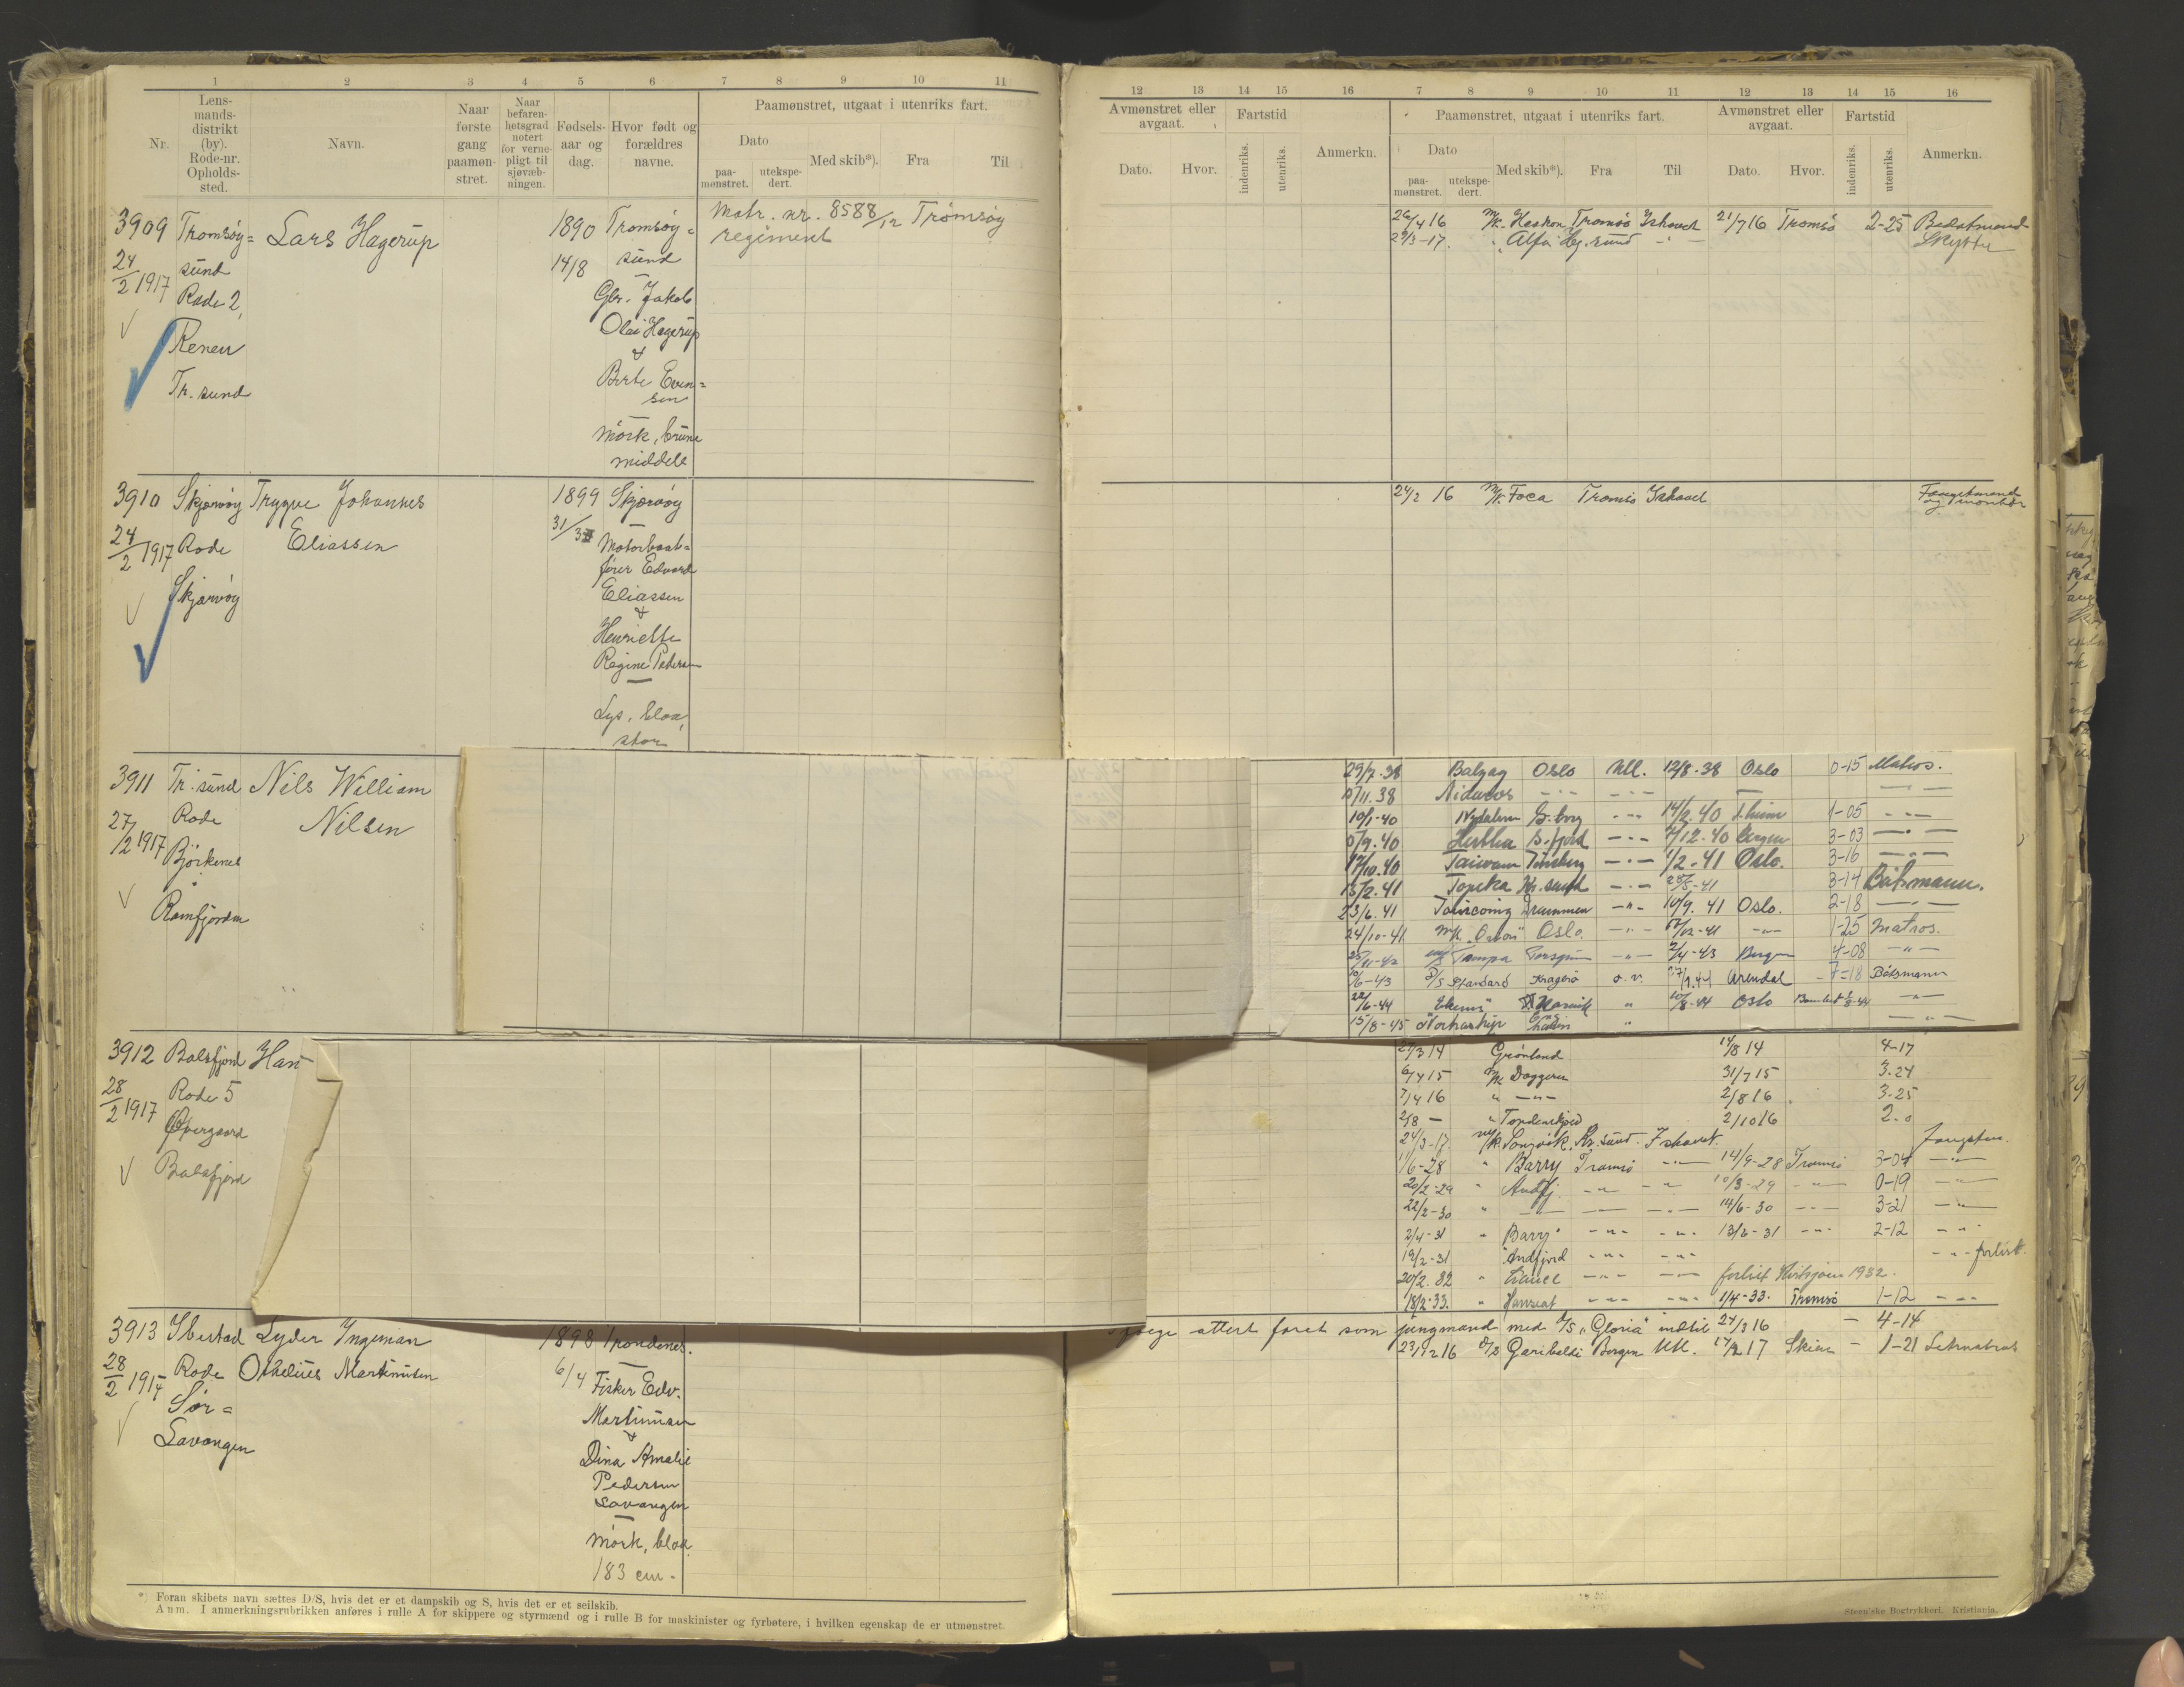 1 2 3 4 5 6 7 8 9 10 11
Nr.
Lens-
mands-
distrikt
(by).
Rode-nr.
Opholds-
sted.
Navn.
Naar
første
gang
paamøn-
stret.
Naar
befaren-
hetsgrad
notert
for verne-
pligt til
sjøvæb-
ningen.
Fødsels-
aar og
dag.
Hvor født og
forældres
navne.
Paamønstret, utgaat i utenriks fart.
Dato
paa-
mønstret.
utekspe-
dert.
Med skib*).
Fra
Til
3909 Tromsöy= Lars Hagerup 1890 Tromsöy=
24/2 1917 sund 14/8 sund
Rode 2,
Renen
Tr. sund
Gbr. Jakob
Olai Hagerup
&
Berte Even=
sen
mörk, brune
middels
Matr. nr. 8588/12 Tromsöy
regiment
3910 Skjærvöy Trygve Johannes 1899 Skjærvöy
24/2 1917 Rode Eliassen 31/3
Skjærvöy
Motorbaat=
förer Edvard
Eliassen
&
Henriette
Regine Pedersen
Lys, blaa,
stor
3911 Tr. sund Nils William
27/2 1917 Rode Nilsen
Björkenes
Ramfjorden
3912 Balsfjord Hans
28/2 1917 Rode 5
Övergaard
Balsfjord
3913 Ibestad Lyder Ingeman 1898 Trondenes.
28/2 1917 Rode Othelius Martinusen 6/4
Sör=
Lavangen
Fisker Edv.
Martinusen
&
Dina Amalie
Pedersen
Lavangen
mörk, blaa
183 cm.
*) Foran skibets navn sættes D/S, hvis det er et dampskib og S, hvis det er et seilskib.
Anm. I anmerkningsrubrikken anføres i rulle A for skippere og styrmænd og i rulle B for maskinister og fyrbøtere, i hvilken egenskap de er utmønstret.
12 13 14 15 16 7 8 9 10 11 12 13 14 15 16
Avmønstret eller
avgaat.
Dato. Hvor.
Fartstid
indenriks. utenriks.
Anmerkn.
Paamønstret, utgaat i utenriks fart.
Dato
paa-
mønstret.
utekspe-
dert.
Med skib*). Fra Til
Avmønstret eller
avgaat.
Dato. Hvor.
Fartstid
indenriks. utenriks.
Anmerkn.
26/4 16 M/K Haakon Tromsö Ishavet 21/7 16 Tromsö 2-25
29/3-17. " Alfa Hg. sund -"- Skytter
24/2 16 M/K Foca Tromsö Ishavet Fangstmand
29/7-38 Balzac Oslo Utl. 12/8-38 Oslo 0-15 Matros.
/11.38 Nidaros -"- -"- -"-
10/1-40 -"- 14/2.40 T.heim 1-05 -"-
/9.40 Hertha S.fjord -"- /12-40 Bergen 3-03 -"-
17/10.40 Taiwan Tönsberg -"- 1/2-41 Oslo. 3-16 -"-
13/2.41 Topeka Kr. sand -"- 3-14 Båtsmann.
23/6.41 Drammen -"- 10/9.41 Oslo. 2-18 -"-
24/10-41 Oslo -"- /12-41 -"- 1-25 Matros.
25/11-42 Tampa -"- 2/4-43 Bergen 4-08 -"-
10/6-43 D/S Standard Kragerö o.v. Arendal 7-18 Båtsmann
/6-44 " 10/8-44 Oslo -"-
15/8-45 "Norhaship" " -"-
27/3 14 Grönland 14/8 14 4-17
6/4 15 Doggeren 31/7 15 3-24
7/4 16 " -"- 2/8 16 3-25
2/8 - " 2/10 16 2.0
24/3-17. M/K Kr. sund. Ishavet. Fangstm.
1/6-28 " Barry Tromsö -"- 14/9-28 Tromsö 3-04 -"-
20/2-29 " Andfj. -"- -"- 10/3-29 -"- 0-19 -"-
22/2-30 " -"- -"- -"- 14/6-30 -"- 3-21 -"-
2/4-31 " Barry -"- -"- 13/6-31 -"- 2-12 -"-
19/2-31 " Andfjord -"- -"- -"- forlist.
20/2.32 " -"- -"- forlist 1932.
18/2-33. " Hanseat -"- -"- 1/4-33. Tromsö 1-12 -"-
attest faret som jungmand med D/S "Gloria" indtil 24/3 16 - 4-14
23/12 16 D/S Garibaldi Bergen Utl. 14/2 17 Skien - 1-21 Letmatros
Steen'ske Bogtrykkeri. Kristiania.